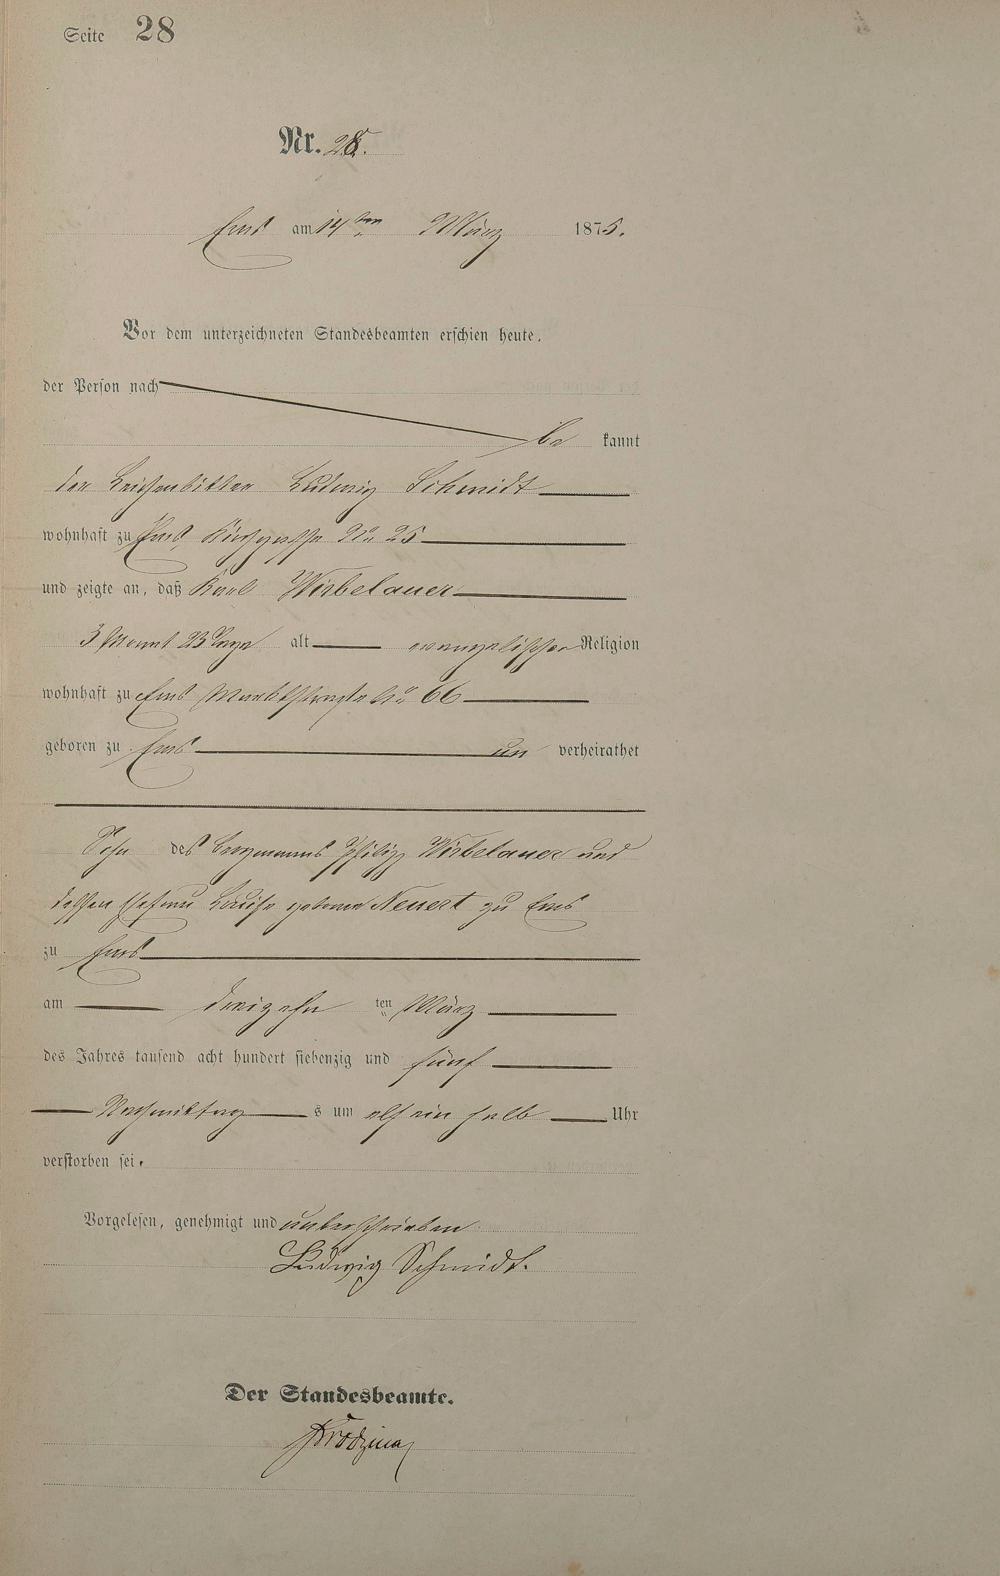 Seite 28
Nr. 28.
Ems am 14ten März 1875.
Vor dem unterzeichneten Standesbeamten erschien heute,
der Person nach
be kannt
der Leichenbitter Ludwig Schmidt
wohnhaft zu Ems, Kirchgasse No 25
und zeigte an, daß Karl Wisbelauer
3 Monat 23 Tage alt evangelischer Religion
wohnhaft zu Ems Marktstraße No 66
geboren zu Ems un verheirathet
Sohn des Bergmanns Philipp Wisbelauer und
dessen Ehefrau Louise geborene Neuert zu Ems
zu Ems
am dreizehn ten März
des Jahres tausend acht hundert siebenzig und fünf
Nachmittag s um elf ein halb Uhr
verstorben sei.
Vorgelesen, genehmigt und unterschrieben
Ludwig Schmidt.
Der Standesbeamte.